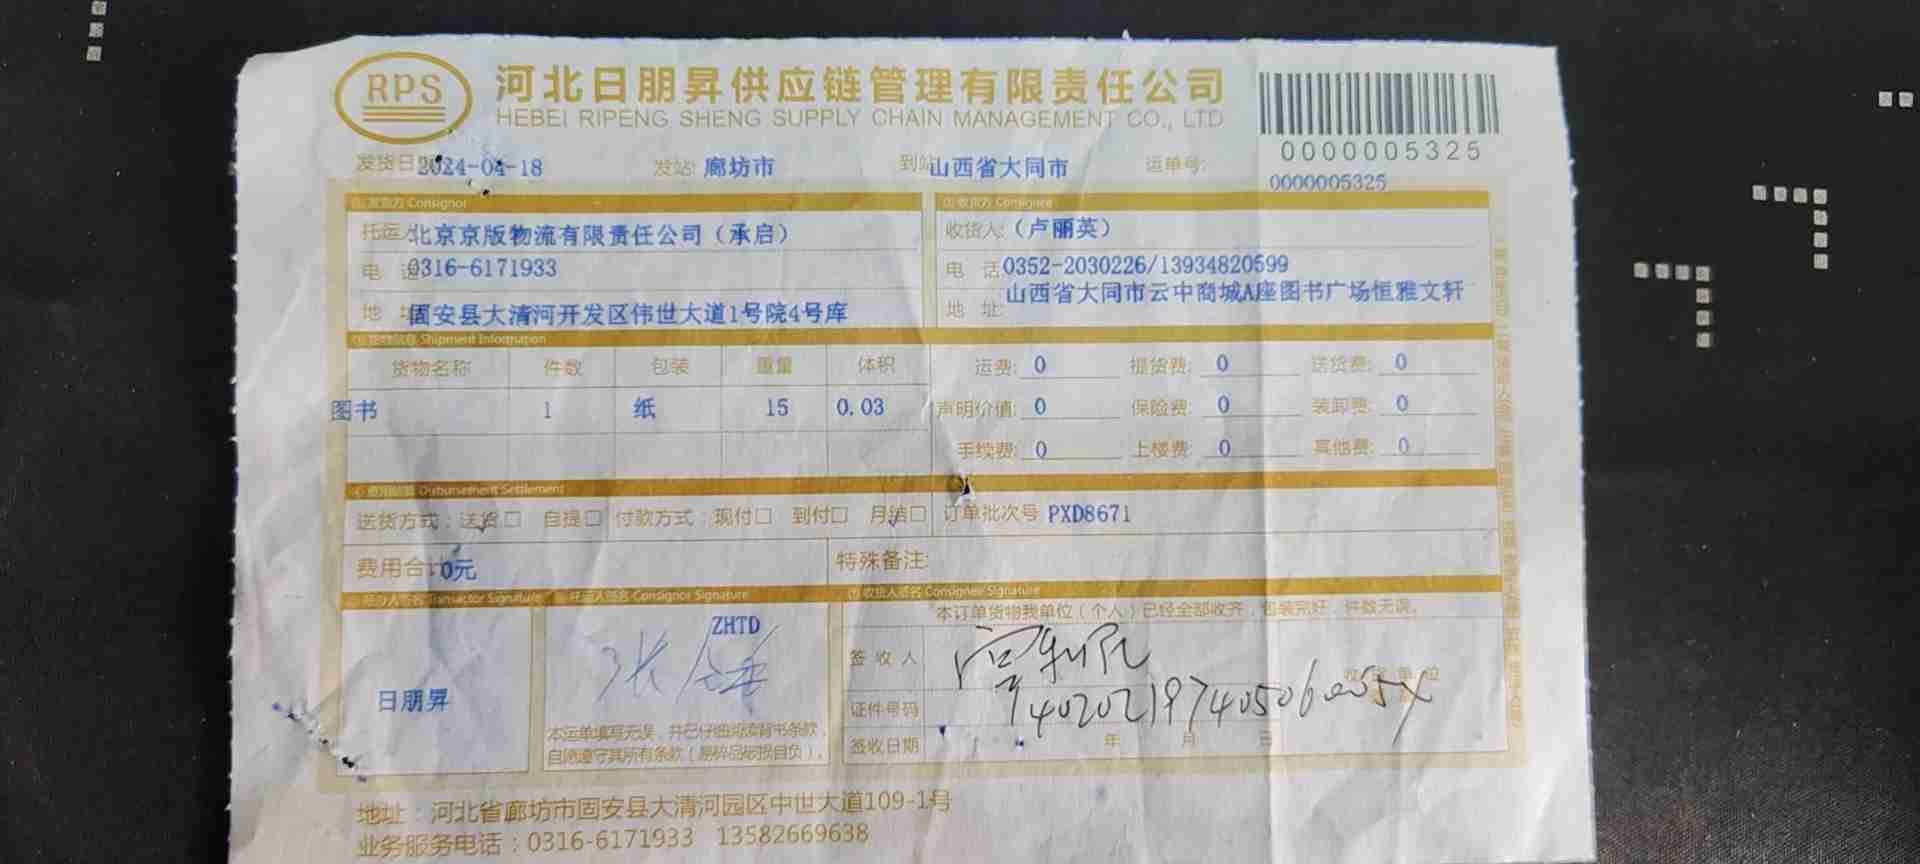 RPS
河北日朋昇供应链管理有限责任公司
HEBEI RIPENG SHENG SUPPLY CHAIN MANAGEMENT CO., LTD
0000005325
发货日 2024-04-18 发站: 廊坊市 到站 山西省大同市 运单号: 0000005325
发货方 Consignor 收货方 Consignee
托运人 北京京版物流有限责任公司（承启） 收货人:（卢丽英）
电 话 0316-6171933 电 话 0352-2030226/13934820599
地 址 固安县大清河开发区伟世大道1号院4号库 地 址: 山西省大同市云中商城A座图书广场恒雅文轩
Shipment Information
货物名称 件数 包装 重量 体积 运费: 0 提货费: 0 送货费: 0
图书 1 纸 15 0.03 声明价值: 0 保险费: 0 装卸费: 0
手续费: 0 上楼费: 0 其他费: 0
Disbursement Settlement
送货方式: 送货□ 自提□ 付款方式: 现付□ 到付□ 月结□ 订单批次号 PXD8671
费用合 0元 特殊备注:
经办人签名 Transactor Signature 托运人签名 Consignor Signature 收货人签名 Consignee Signature
本订单货物我单位（个人）已经全部收齐，包装完好，件数无误。
ZHTD
签收人
日朋昇
证件号码
本运单填写无误，并已仔细阅读背书条款，
自愿遵守其所有条款（易碎品破损自负）。
签收日期 年 月 日
地址：河北省廊坊市固安县大清河园区中世大道109-1号
业务服务电话：0316-6171933 13582669638